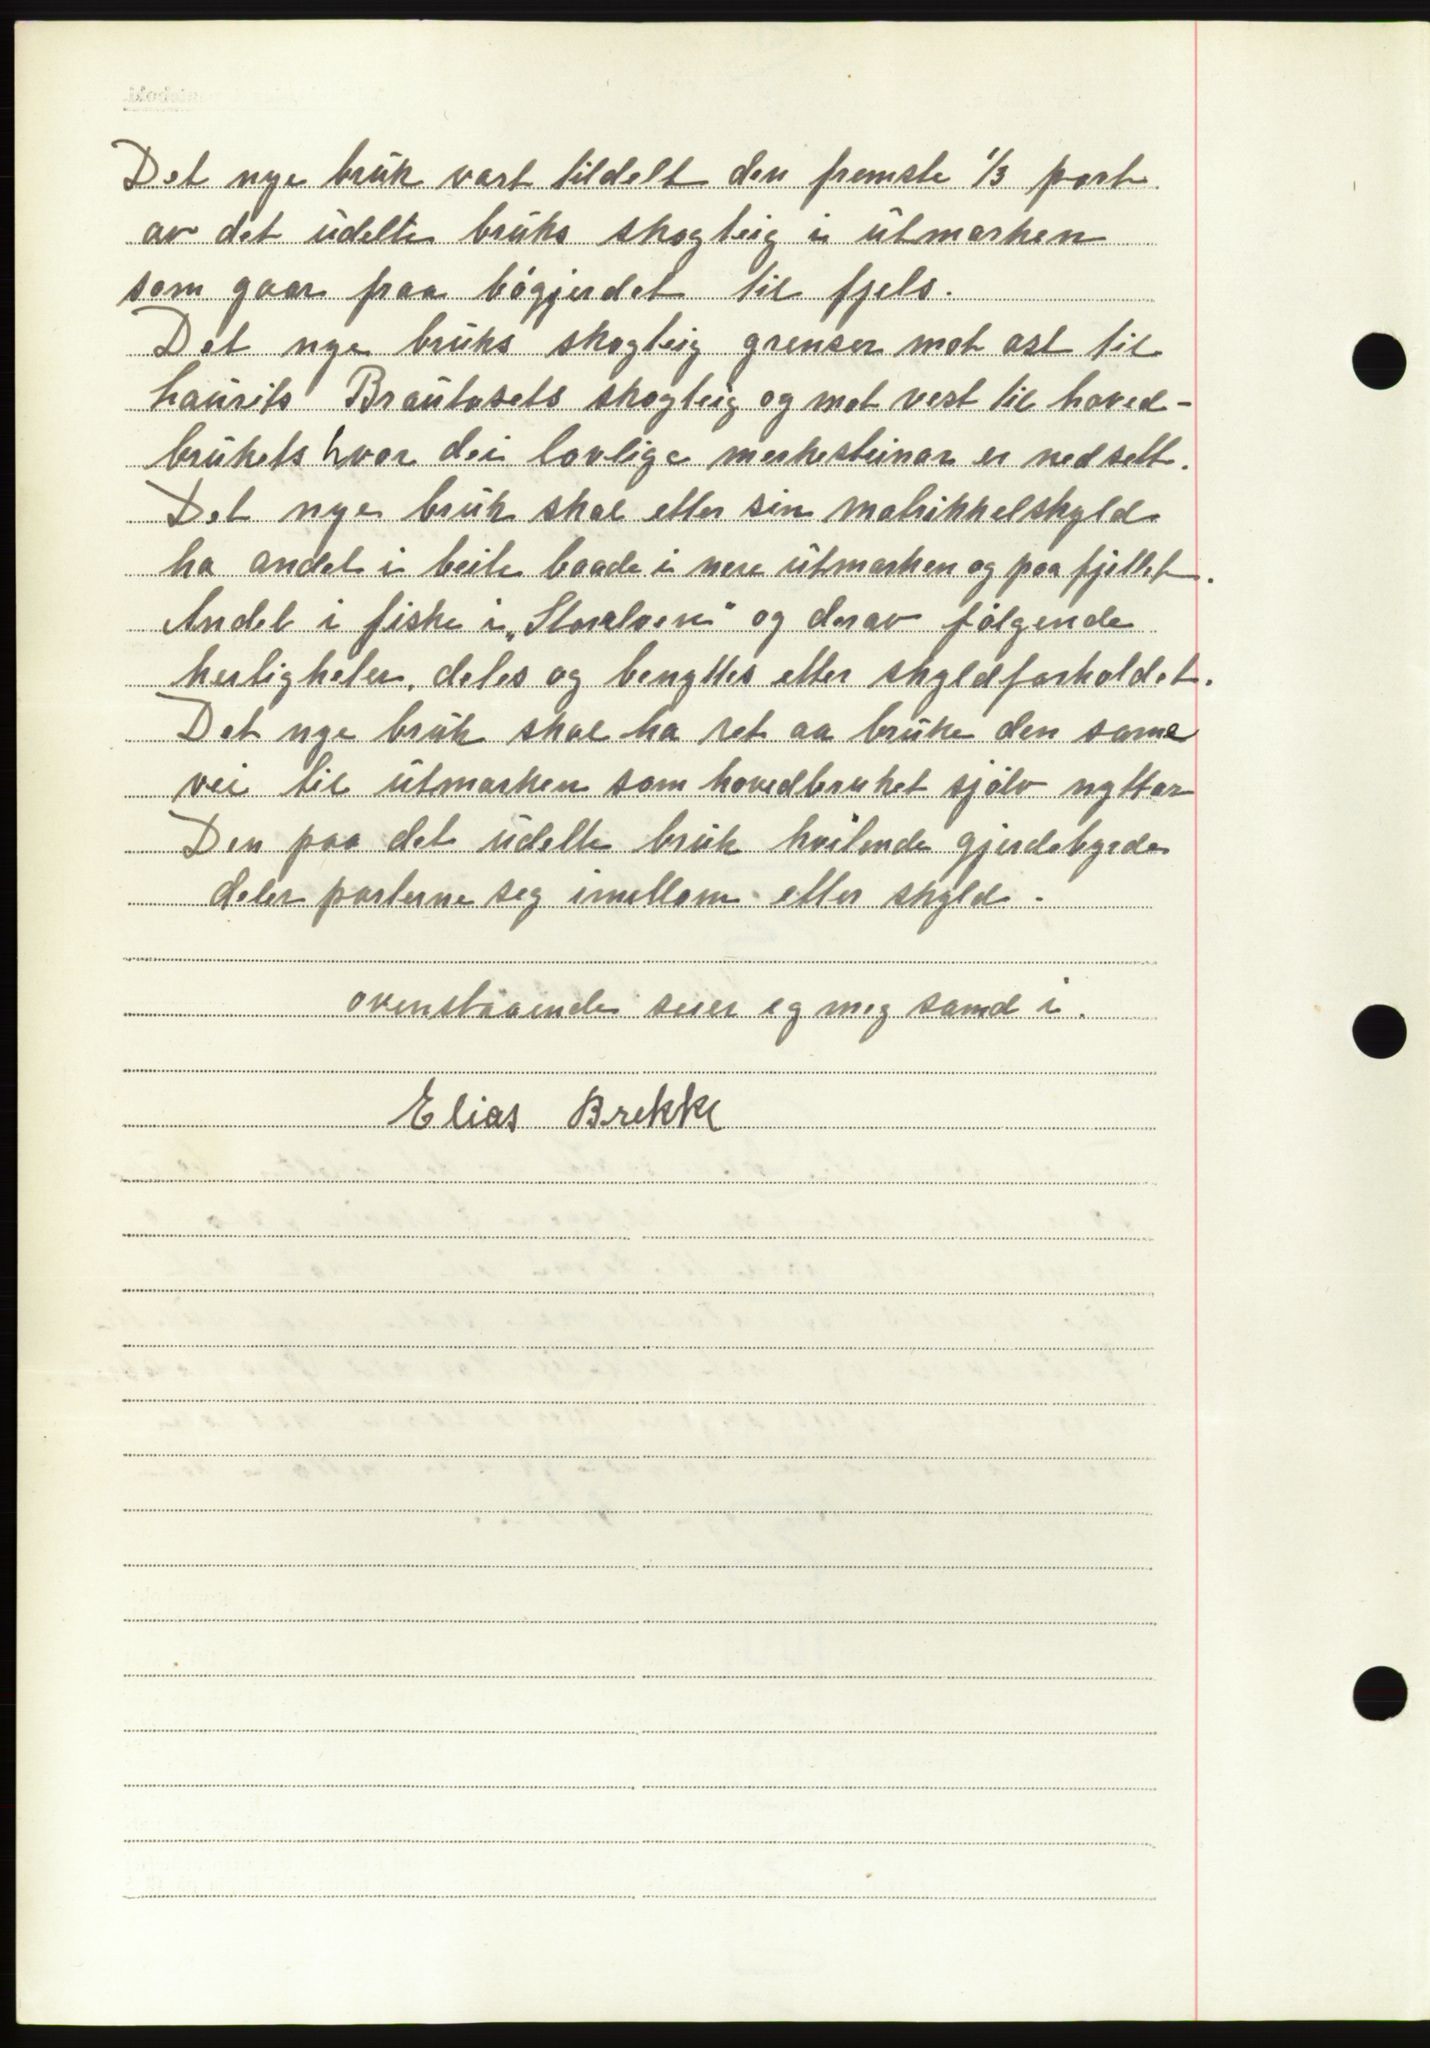 Det nye bruk vart tildelt den fremste 1/3 part
av det udelte bruks skogteig i utmarken
som gaar fraa bögjerdet til fjels.
Det nye bruks skogteig grenser mot øst til
Laurits Brautasets skogteig og mot vest til hoved-
brukets hvor dei lovlige merkesteinar er nedsett.
Det nye bruk skal etter sin matrikkelskyld
ha andel i beite baade i nere utmarken og paa fjellet.
Andel i fiske i „Storelven" og derav følgende
herligheter, deles og benyttes etter skyldforholdet.
Det nye bruk skal ha ret aa bruke den same
vei til utmarken som hovedbruket sjölv nyttar
Den paa det udelte bruk hvilende gjerdebyrde
deler parterne seg imellom etter skyld.
ovenstaaende seier eg meg samd i.
Elias Brekke